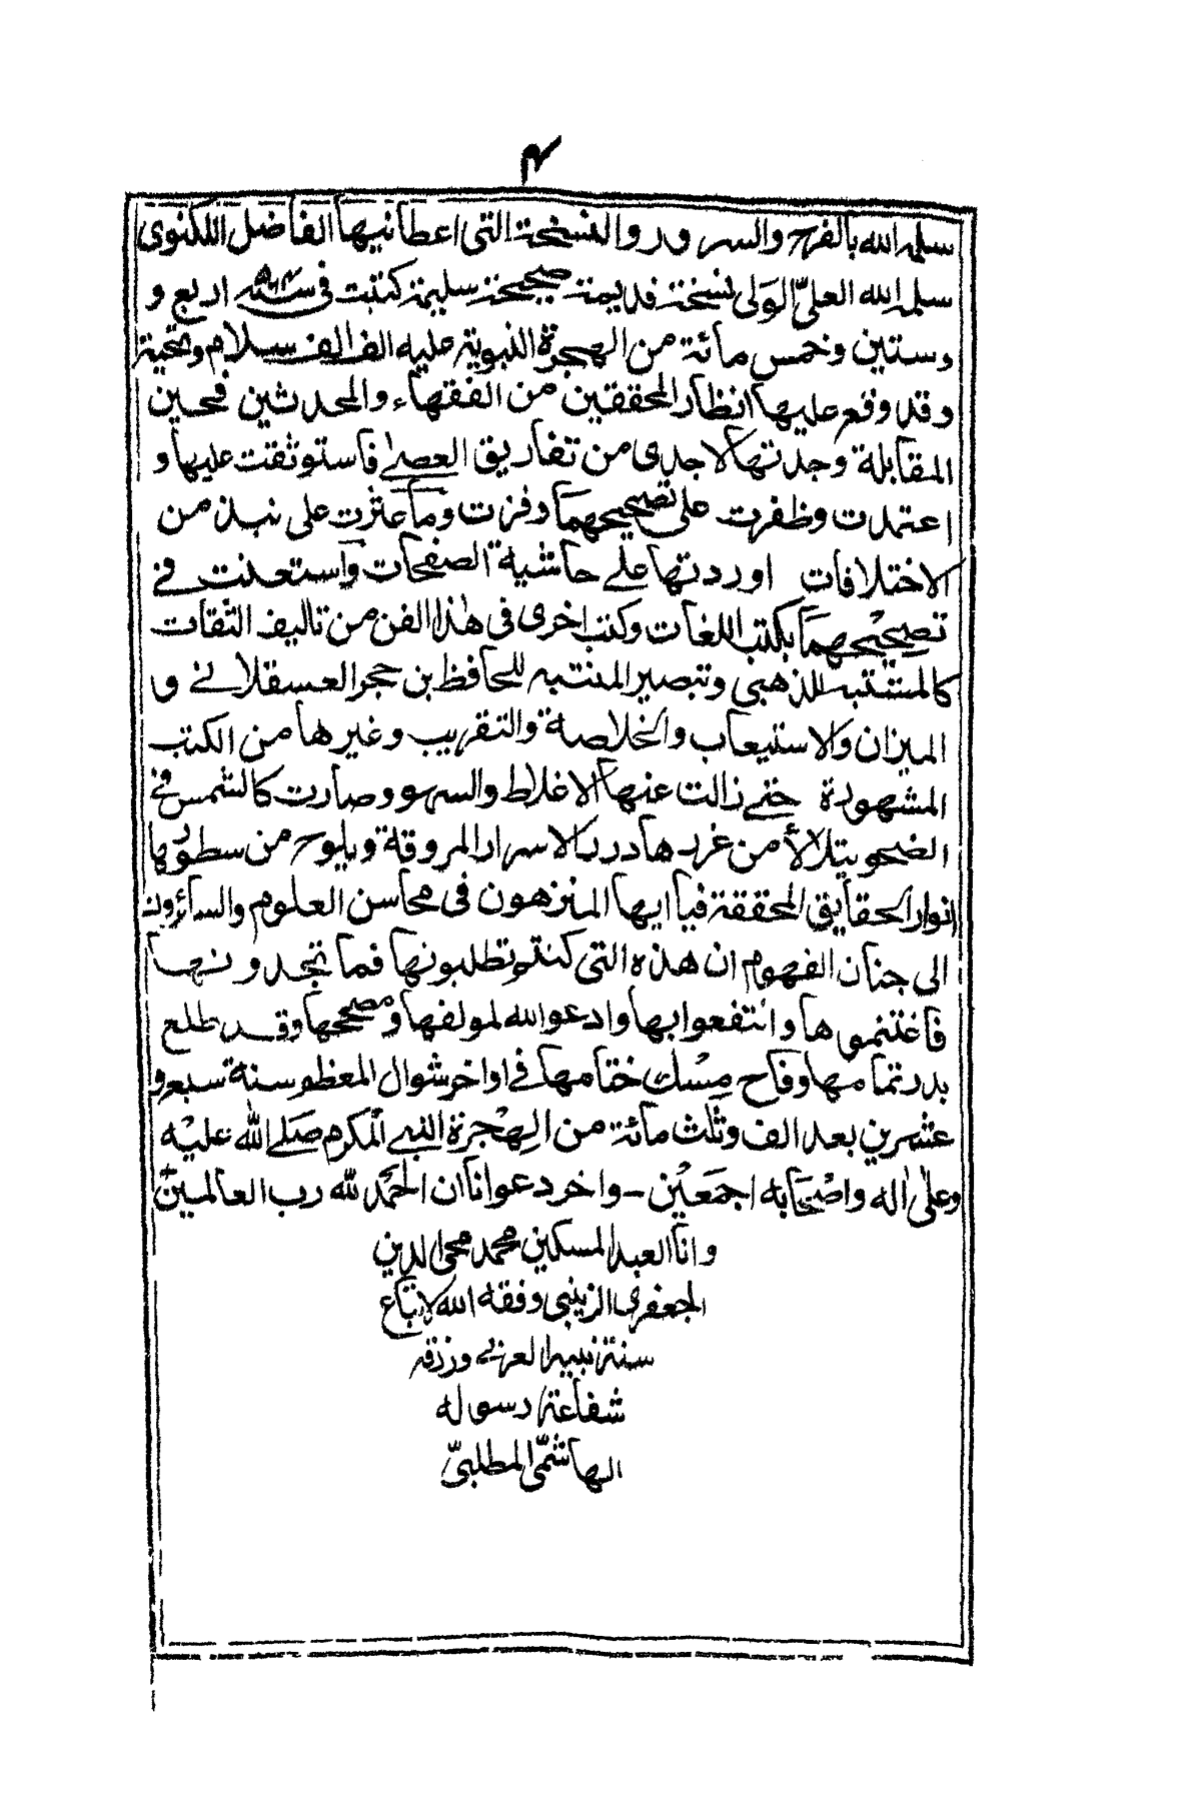 ۴
سلمه الله بالفرح والسرور والنسخة التى اعطانيها الفاضل اللكنوى
سلمه الله العلىّ الولى نسخة قديمة صحيحة سليمة كتبت فى سنه ۵۶۴ اربع و
وستين وخمس مائة من الهجرة النبوية عليه الف الف سلام وتحية
وقد وقع عليها انظار المحققين من الفقهاء والمحدثين فحين
المقابلة وجدتها لاجدى من تفاريق العصا فاستوثقت عليها و
اعتمدت وظفرت على تصحيحهما وفزت وما عثرت على نبذ من
الاختلافات اوردتها على حاشية الصفحات واستعنت فى
تصحيحهما بكتب اللغات وكتب اخرى فى هذا الفن من تاليف الثقات
كالمشتبه للذهبى وتبصير المنتبه للحافظ بن حجر العسقلانى و
الميزان والاستيعاب والخلاصة والتقريب وغيرها من الكتب
المشهودة حتى زالت عنها الاغلاط والسهو وصارت كالشمس فى
الضحو يتلالأ من غررها درر الاسرار المروقة ويلوح من سطورها
انوار الحقايق المحققة فيا ايها المنزهون فى محاسن العلوم والسائرون
الى جنان الفهوم ان هذه التى كنتم تطلبونها فما تجدونها
فاغتنموها وانتفعوا بها وادعوا الله لمولفها ومصححها وقد طلع
بدر تمامها وفاح مسك ختامها فى اواخر شوال المعظم سنة سبع و
عشرين بعد الف وثلث مائة من الهجرة النبى المكرم صلى الله عليه
وعلى اله واصحابه اجمعين - واخر دعوانا ان الحمد لله رب العالمين
وانا العبد المسكين محمد محى الدين
الجعفرى الزينبى وفقه الله لاتباع
سنة نبيه العربى ورزقه
شفاعة رسوله
الهاشمّى المطلبىّ